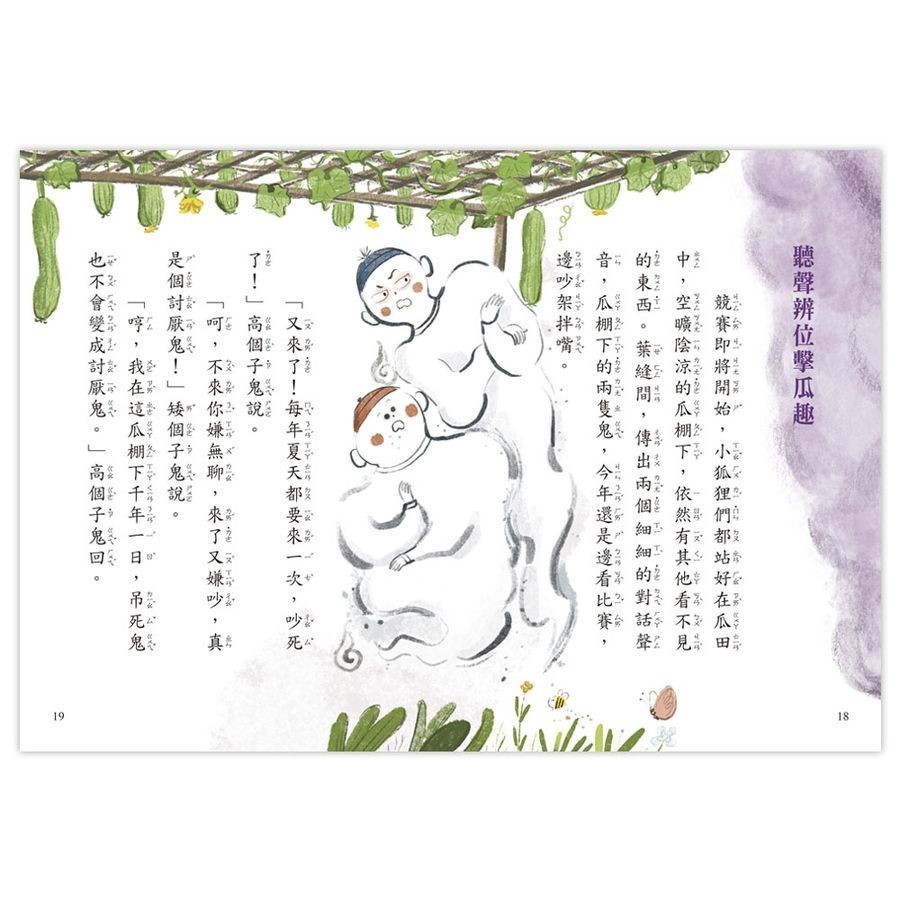 聽聲辨位擊瓜趣
競賽即將開始，小狐狸們都站好在瓜田
中，空曠陰涼的瓜棚下，依然有其他看不見
的東西。葉縫間，傳出兩個細細的對話聲
音，瓜棚下的兩隻鬼，今年還是邊看比賽，
邊吵架拌嘴。
「又來了！每年夏天都要來一次，吵死
了！」高個子鬼說。
「呵，不來你嫌無聊，來了又嫌吵，真
是個討厭鬼！」矮個子鬼說。
「哼，我在這瓜棚下千年一日，吊死鬼
也不會變成討厭鬼。」高個子鬼回。
19
18